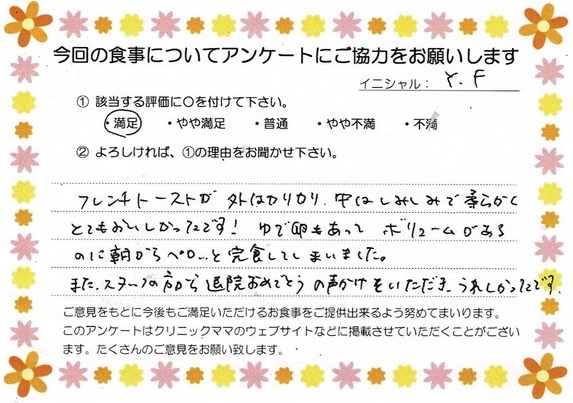 今回の食事についてアンケートにご協力をお願いします
イニシャル: Y.F
① 該当する評価に○を付けて下さい。
・満足 ・やや満足 ・普通 ・やや不満 ・不満
② よろしければ、①の理由をお聞かせ下さい。
フレンチトーストが 外はカリカリ、中はしみしみで柔らかく
とてもおいしかったです! ゆで卵もあって ボリュームがある
のに朝からペロッと完食してしまいました。
また、スタッフの方から 退院おめでとう の声かけをいただき うれしかったです。
ご意見をもとに今後もご満足いただけるお食事をご提供出来るよう努めてまいります。
このアンケートはクリニックママのウェブサイトなどに掲載させていただくことがござい
ます。たくさんのご意見をお願い致します。